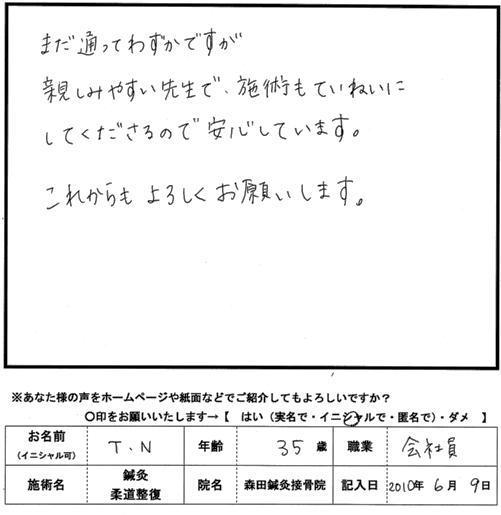 まだ通ってわずかですが
親しみやすい先生で、施術もていねいに
してくださるので安心しています。
これからもよろしくお願いします。
※あなた様の声をホームページや紙面などでご紹介してもよろしいですか？
〇印をお願いいたします→【　はい（実名で・イニシャルで・匿名で）・ダメ　】
お名前（イニシャル可） T.N 年齢 35 歳 職業 会社員
施術名 鍼灸 柔道整復 院名 森田鍼灸接骨院 記入日 2010年 6月 9日